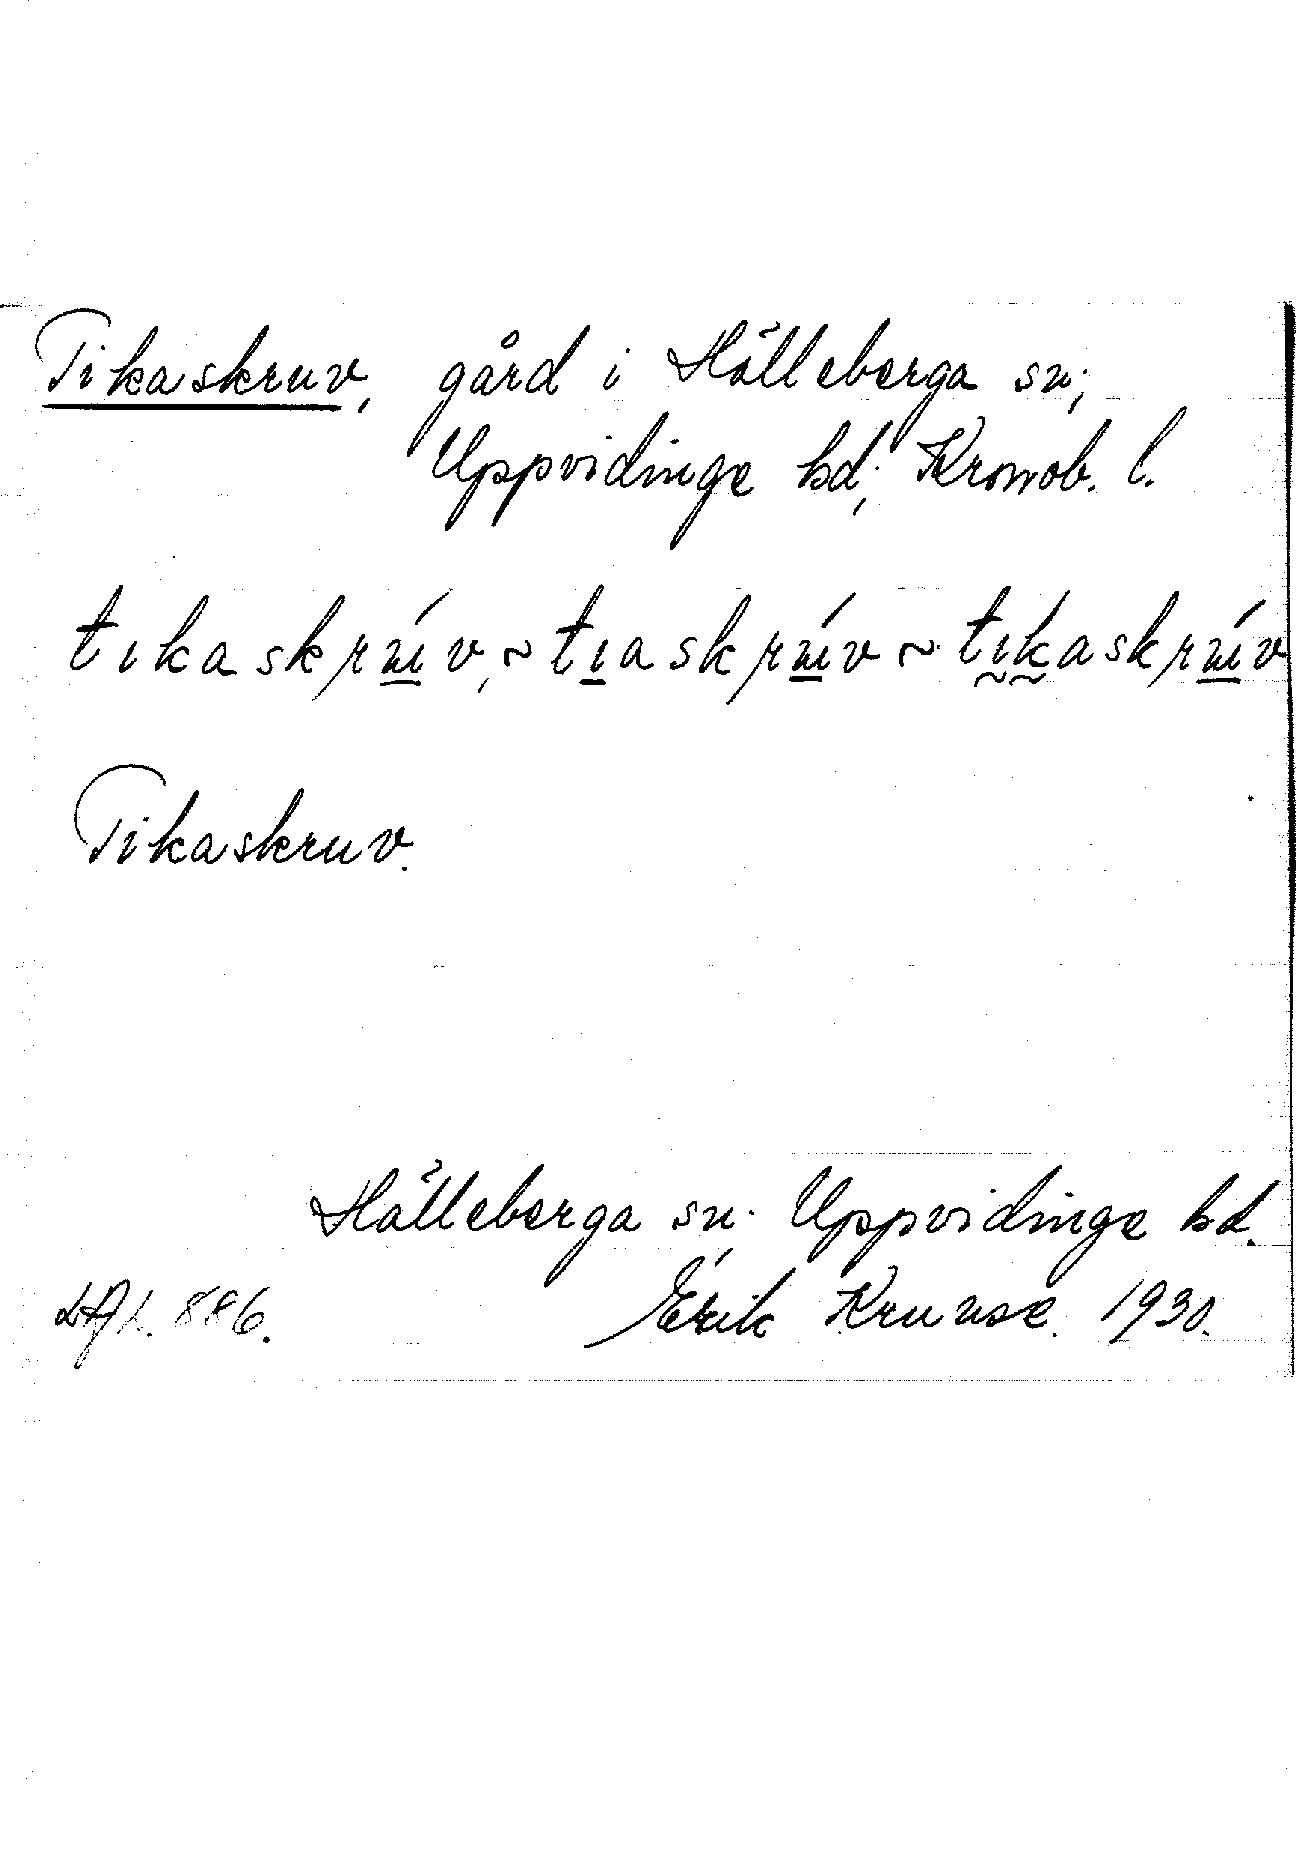 Tikaskruv, gård i Hälleberga sn;
Uppvidinge hd; Kronob. l.
tıkaskrúv, ~ tıaskrúv ~ tıkaskrúv
Tikaskruv.
Hälleberga sn. Uppvidinge hd.
886. Erik Kruuse. 1930.